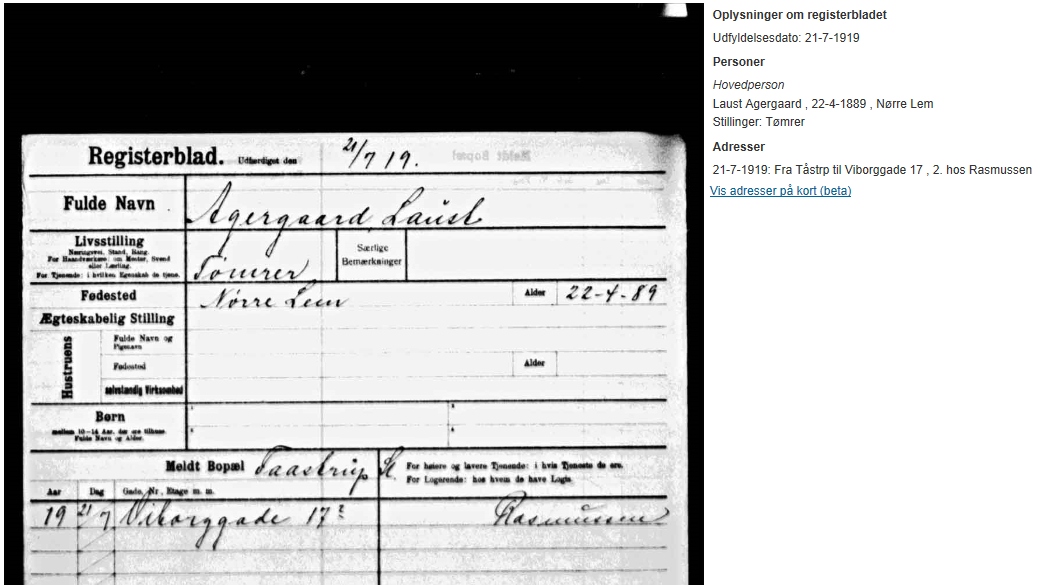 Registerblad. Udfærdiget den 21/7 19.
Fulde Navn Agergaard, Laust
Livsstilling
Næringsvei, Stand, Rang.
For Haandværkere: om Mester, Svend
eller Lærling.
For Tjenende: i hvilken Egenskab de tjene.
Tömrer
Særlige
Bemærkninger
Fødested Nörre Lem Alder 22-4-89
Ægteskabelig Stilling
Hustruens
Fulde Navn og
Pigenavn
Fødested Alder
selvstændig Virksomhed
Børn
mellem 10-14 Aar, der ere tilhuse.
Fulde Navn og Alder.
Meldt Bopæl Taastrup St
For højere og lavere Tjenende: i hvis Tjeneste de ere.
For Logerende: hos hvem de have Logis.
Aar Dag Gade, Nr., Etage m. m.
19 21/7 Viborggade 17² Rasmussen
Oplysninger om registerbladet
Udfyldelsesdato: 21-7-1919
Personer
Hovedperson
Laust Agergaard , 22-4-1889 , Nørre Lem
Stillinger: Tømrer
Adresser
21-7-1919: Fra Tåstrp til Viborggade 17 , 2. hos Rasmussen
Vis adresser på kort (beta)